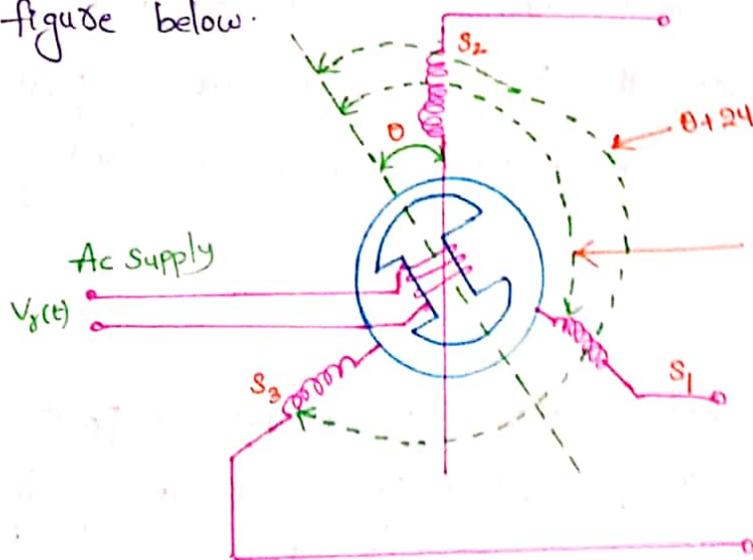 figure below.
S2
θ
θ+24
Ac Supply
Vr(t)
S3
S1